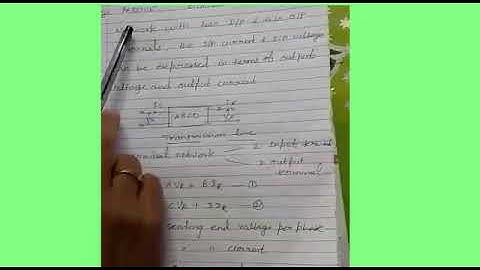 network with two I/P & two O/P
terminals, the I/P current & I/P voltage
can be expressed in terms of output
voltage and output current
ABCD
Transmission line
terminal network
2 input terminal
2 output
terminal
AVR + BIR — ①
CVR + DIR — ②
sending end voltage per phase
" " current